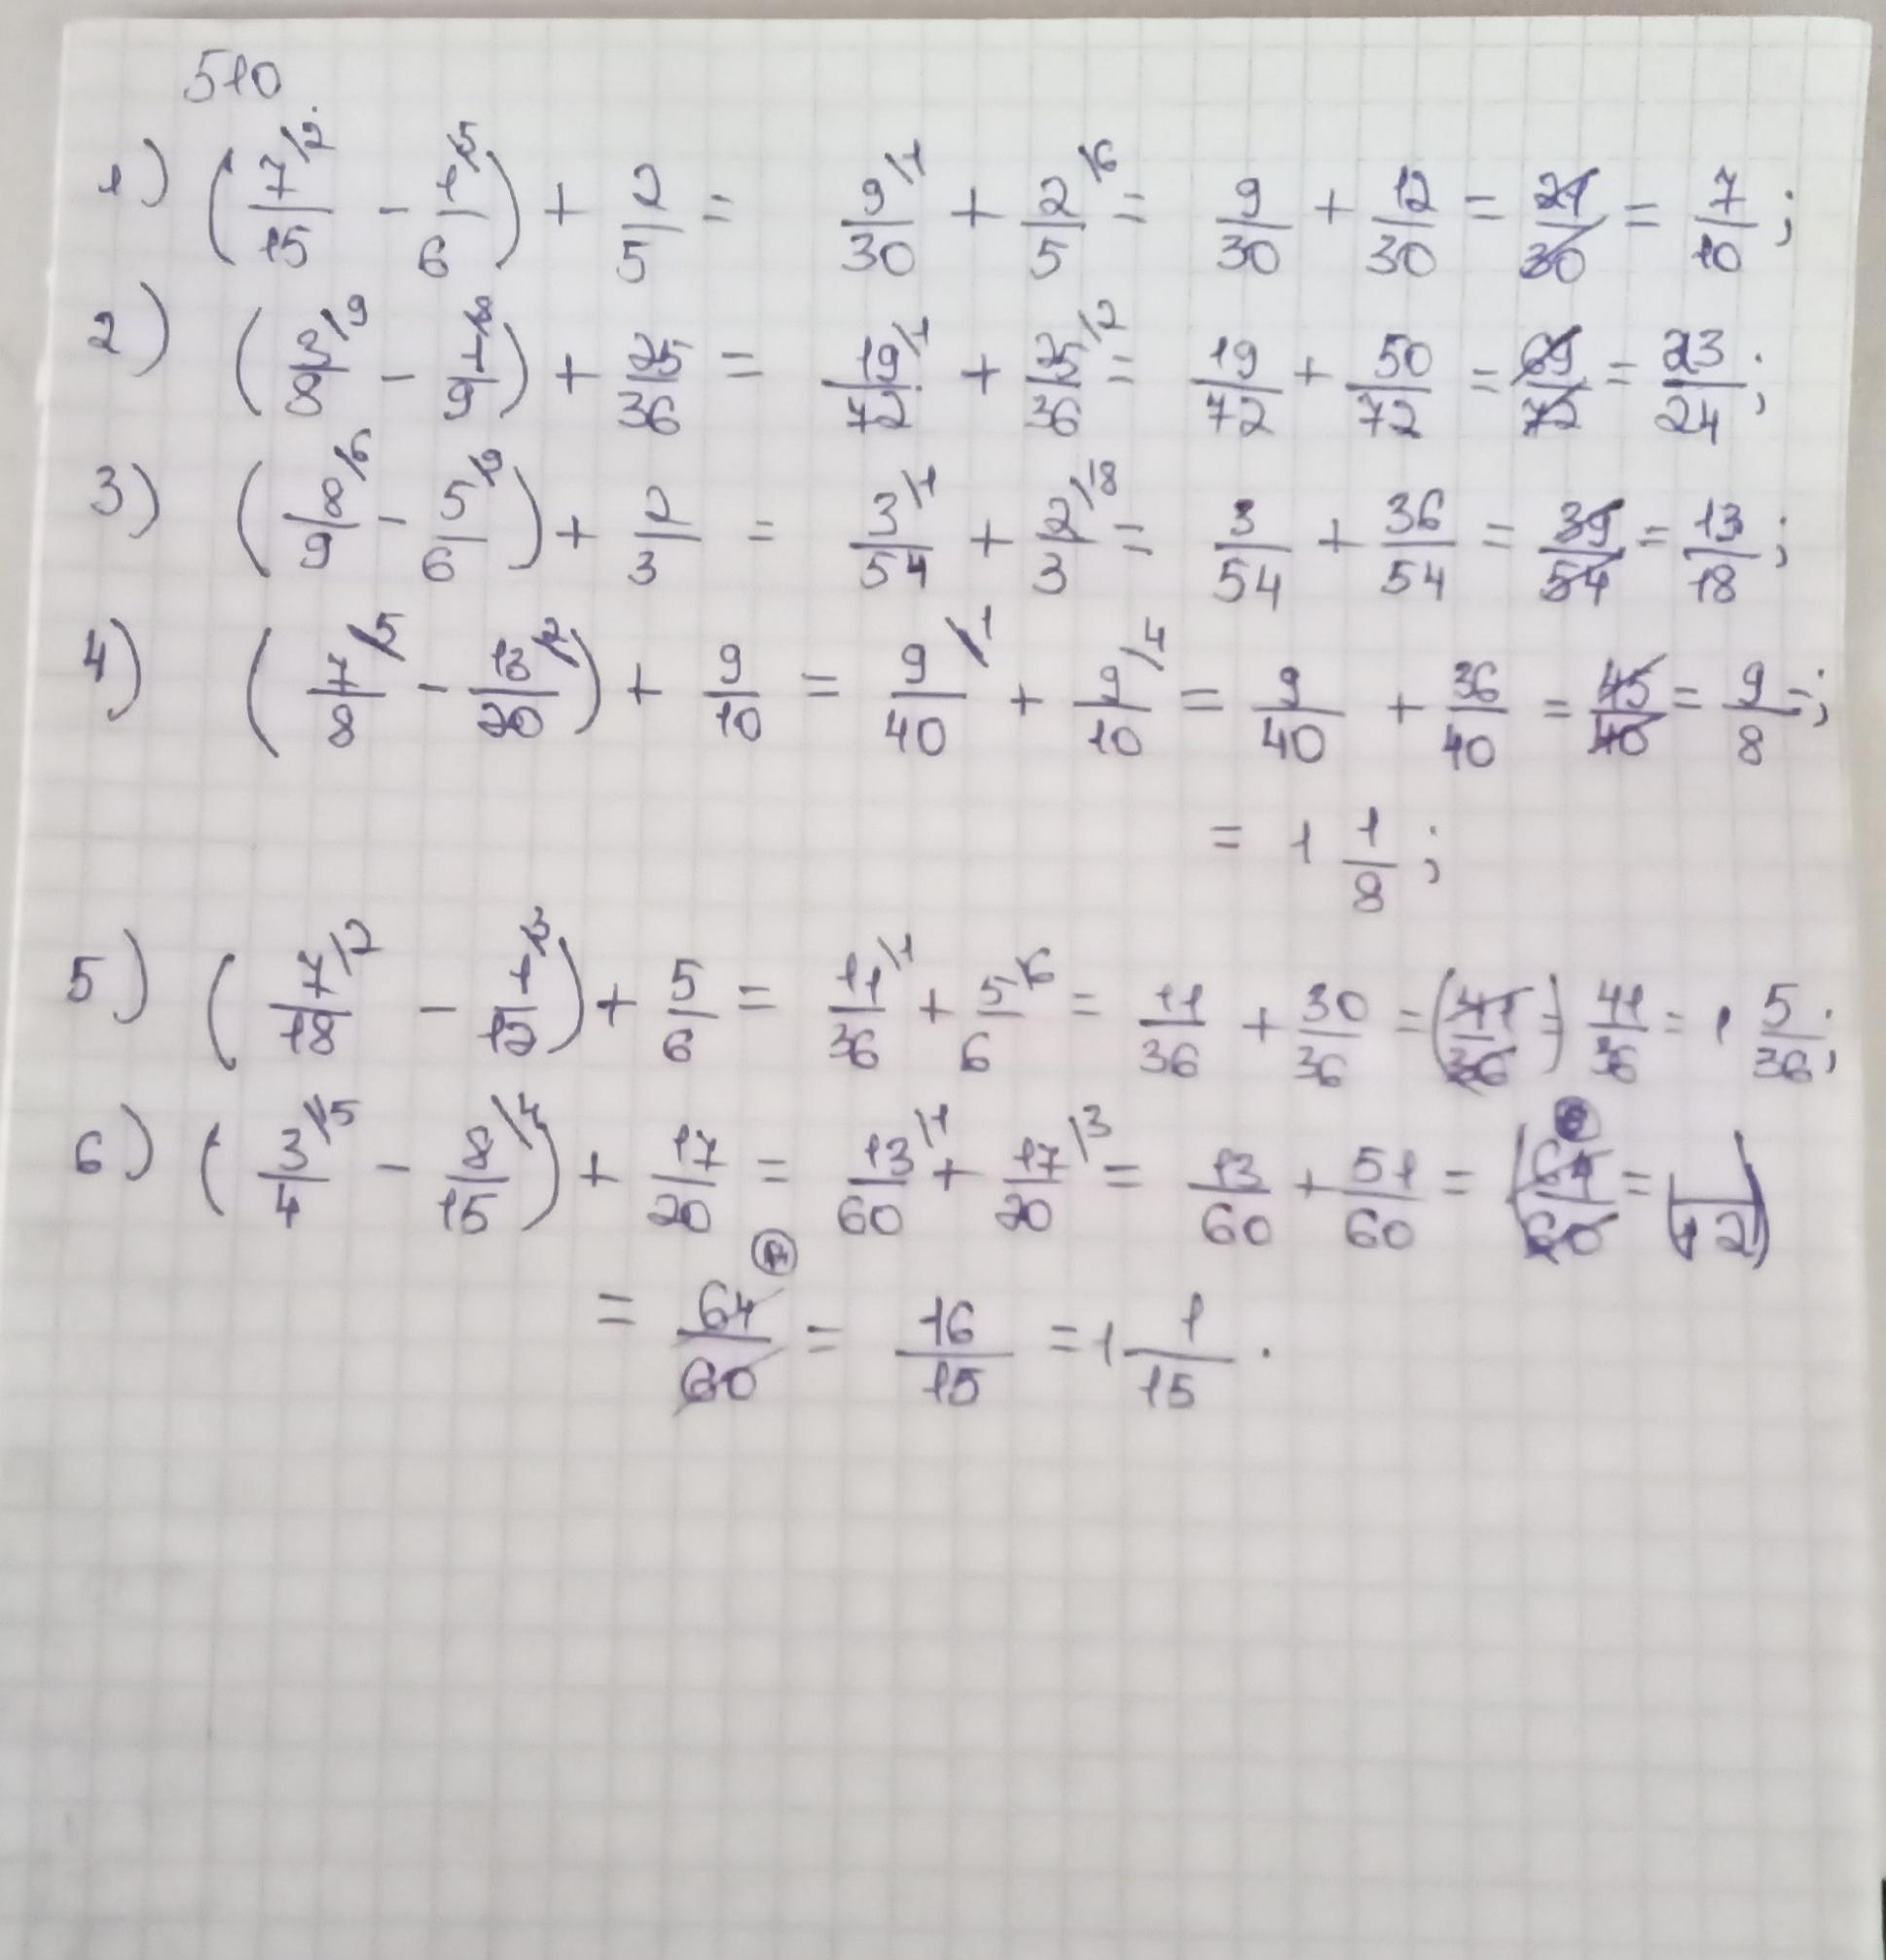 510.
1) (7/15 /2 - 1/6 /5) + 2/5 = 9/30 /1 + 2/5 /6 = 9/30 + 12/30 = 21/30 = 7/10 ;
2) (3/8 /9 - 1/9 /8) + 25/36 = 19/72 /1 + 25/36 /2 = 19/72 + 50/72 = 69/72 = 23/24 ;
3) (8/9 /6 - 5/6 /9) + 2/3 = 3/54 /1 + 2/3 /18 = 3/54 + 36/54 = 39/54 = 13/18 ;
4) (7/8 /5 - 13/20 /2) + 9/10 = 9/40 /1 + 9/10 /4 = 9/40 + 36/40 = 45/40 = 9/8 = ;
= 1 1/8 ;
5) (7/18 /2 - 1/12 /3) + 5/6 = 11/36 /1 + 5/6 /6 = 11/36 + 30/36 = (41/36 =) 41/36 = 1 5/36 ;
6) (3/4 /15 - 8/15 /4) + 17/20 = 13/60 /1 + 17/20 /3 = 13/60 + 51/60 = (64/60 = /12)
= 64/60 = 16/15 = 1 1/15 .